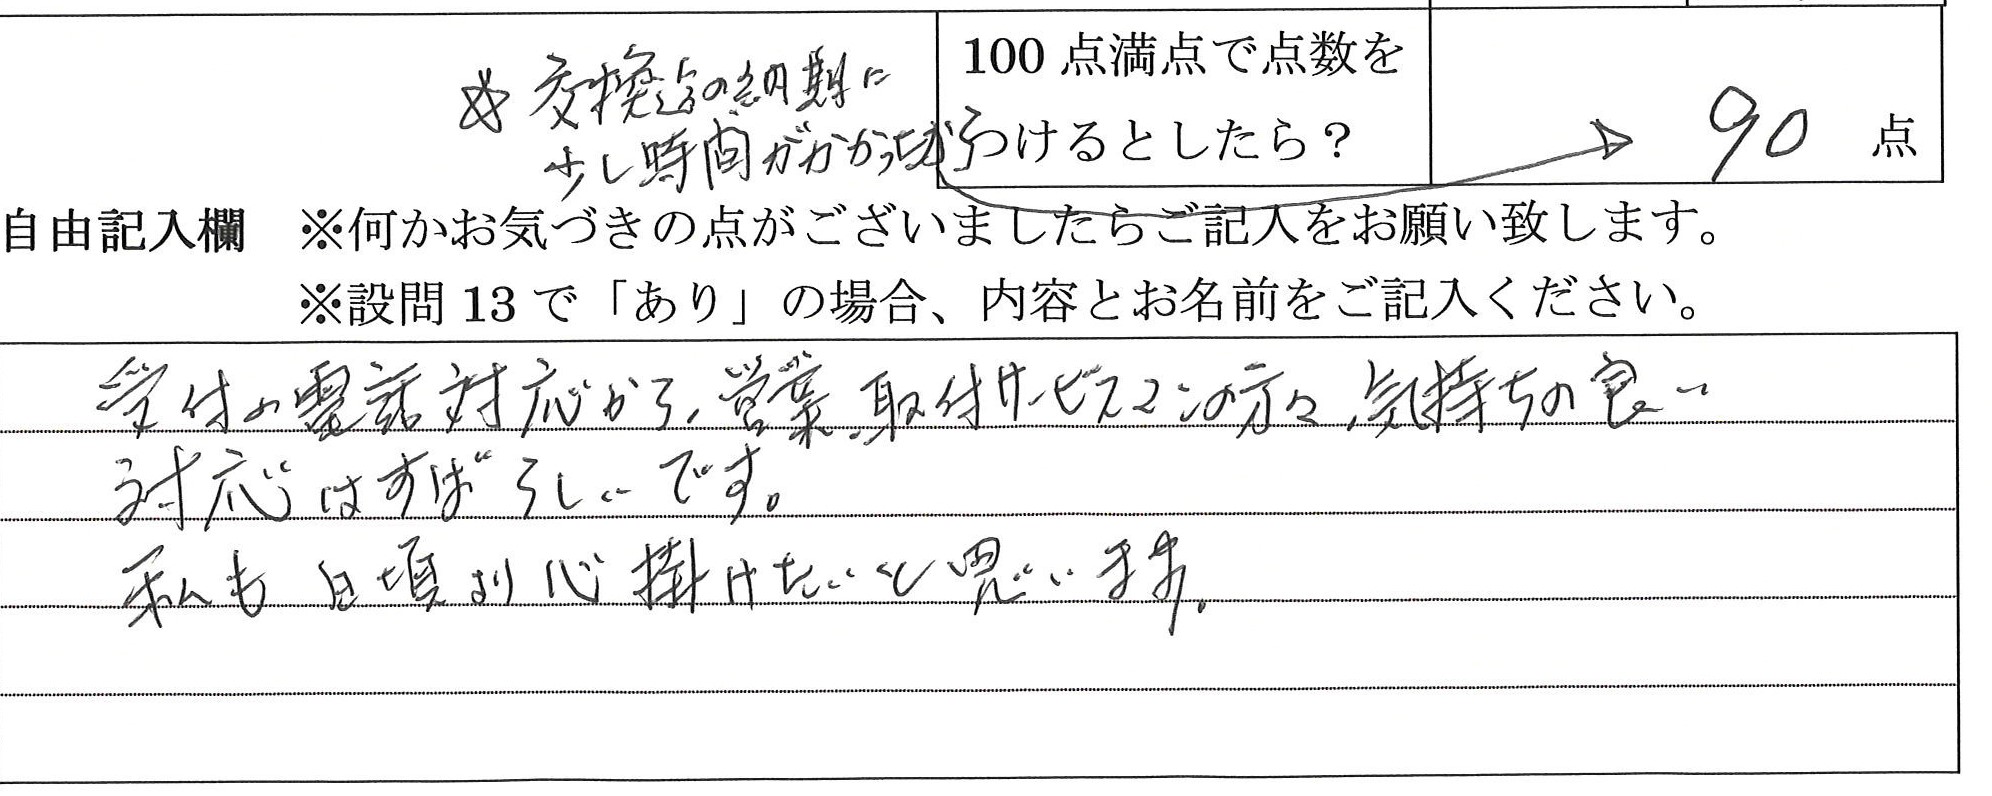 ※交換迄の納期に
少し時間がかかった為
100 点満点で点数を
つけるとしたら？
90 点
自由記入欄 ※何かお気づきの点がございましたらご記入をお願い致します。
※設問 13 で「あり」の場合、内容とお名前をご記入ください。
受付の電話対応から、営業、取付サービスマンの方々、気持ちの良い
対応はすばらしいです。
私も日頃より心掛けたいと思います。